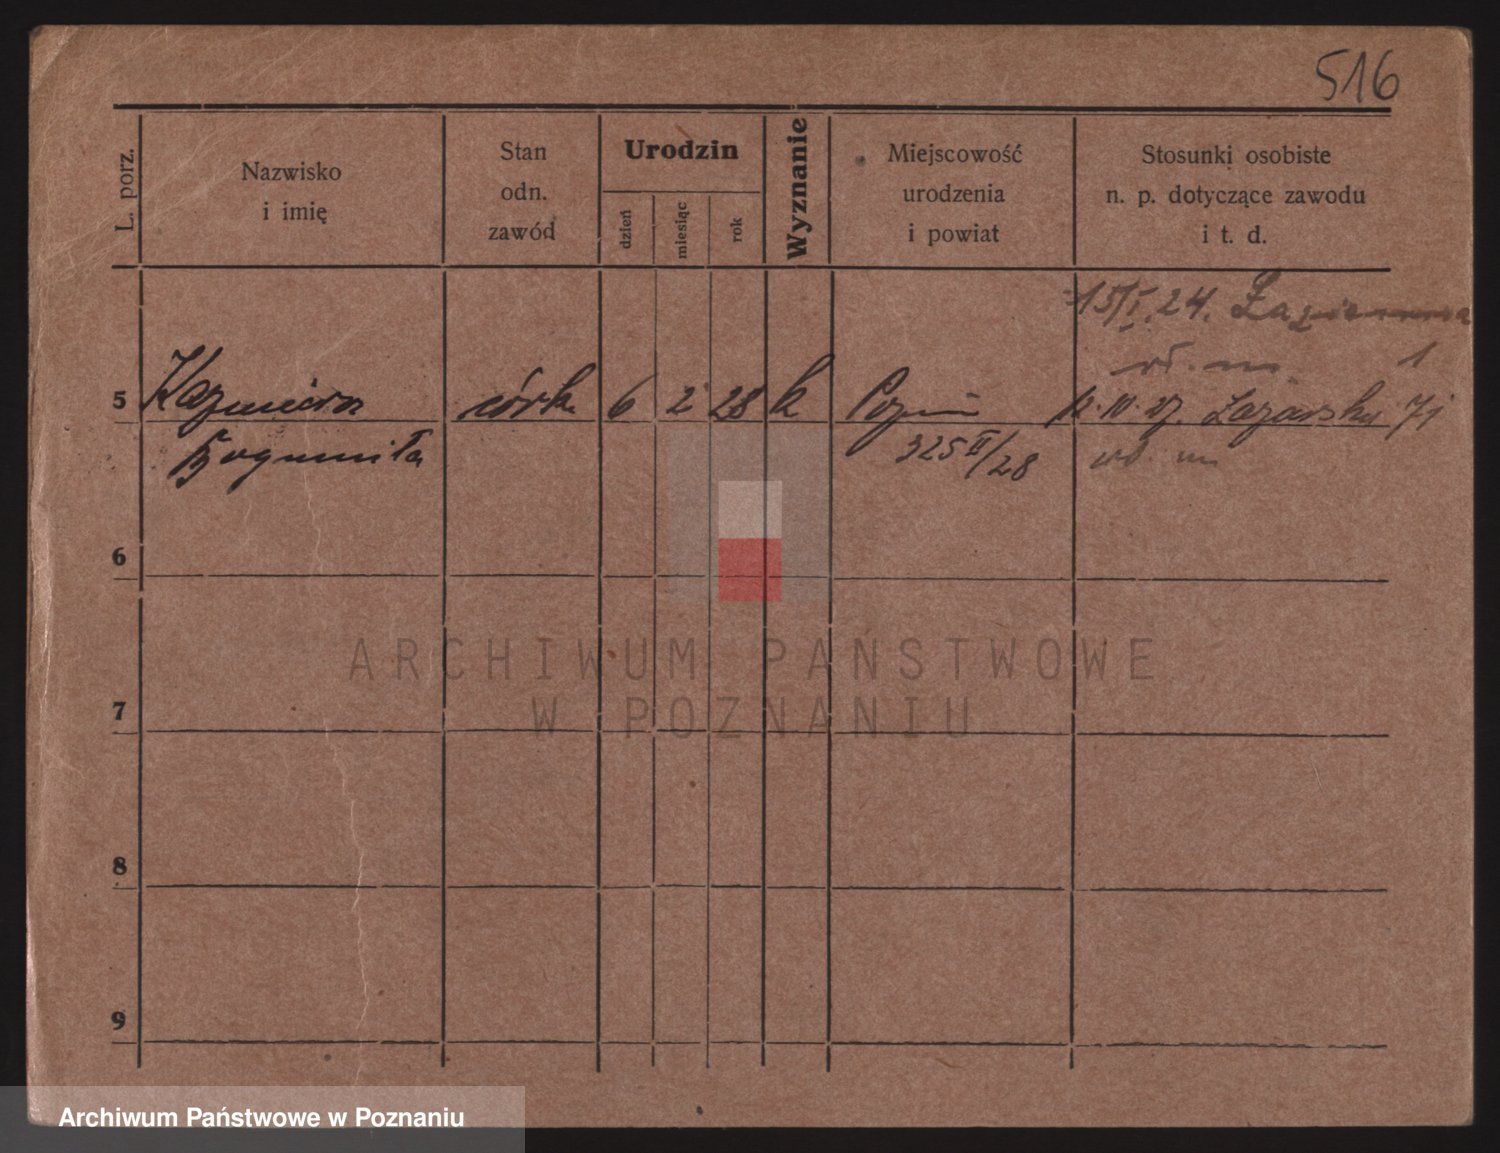 516
L. porz.
Nazwisko
i imię
Stan
odn.
zawód
Urodzin
dzień
miesiąc
rok
Wyznanie
Miejscowość
urodzenia
i powiat
Stosunki osobiste
n. p. dotyczące zawodu
i t. d.
15/I. 24.
1
5 Kazimiera córk. 6 2 28 k Pozn
Bogumiła 325 II/28
6
7
8
9
ARCHIWUM PAŃSTWOWE
W POZNANIU
Archiwum Państwowe w Poznaniu